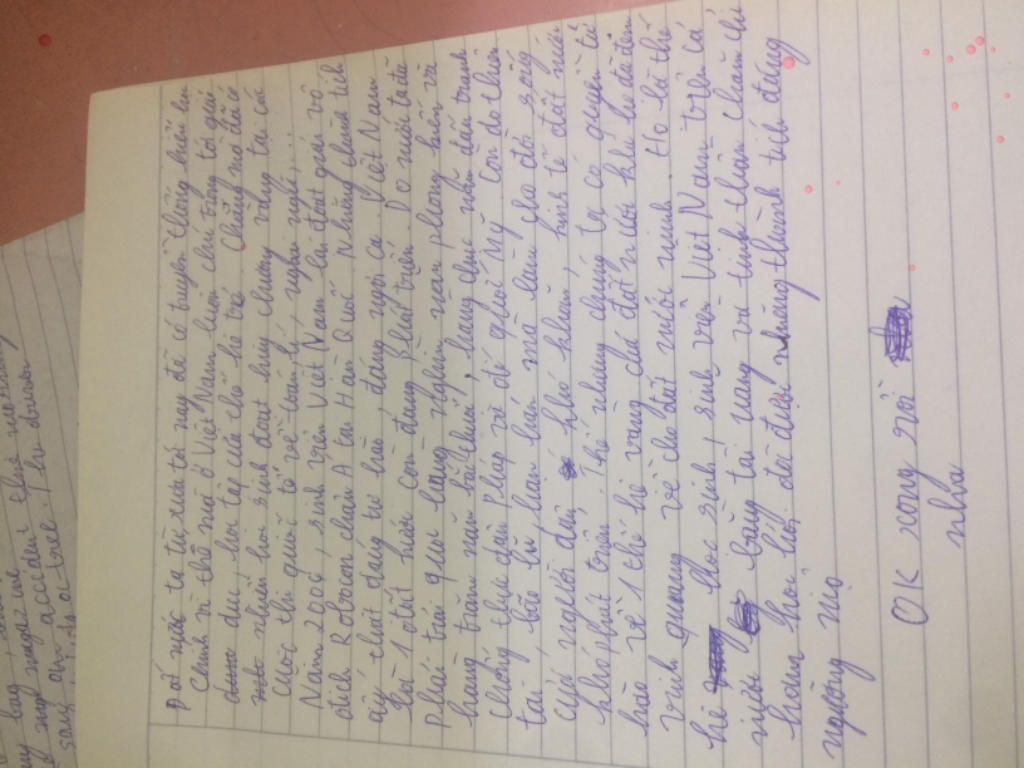 Đất nước ta từ xưa tới nay đã có truyền thống hiếu học
Chính vì thế mà ở Việt Nam luôn chú trọng tới giáo
dục, học tập của thế hệ trẻ. Chẳng mà đã có
nhiều học sinh đoạt huy chương vàng tại các
cuộc thi quốc tế về toán lý, ngoại ngữ,...
Năm 2006, sinh viên Việt Nam lại đoạt giải vô
địch Robocon châu Á tại Hàn Quốc. Những thành tích
ấy thật đáng tự hào, đáng ngợi ca. Việt Nam
là 1 đất nước còn đang phát triển. Do nước ta đã
phải trải qua hàng nghìn năm phong kiến và
hàng trăm năm bắc thuộc, hàng chục năm đấu tranh
chống thực dân Pháp và đế quốc Mỹ. Còn do thiên
tai, bão lũ, hạn hán mà làm cho đời sống
của người dân khó khăn, kinh tế đất nước
khó phát triển. Thế nhưng chúng ta có quyền tự
hào về 1 thế hệ vàng của đất nước khi họ đã đem
vinh quang về cho đất nước mình. Họ là thế
hệ học sinh, sinh viên Việt Nam trên cả
nước bằng tài năng và tinh thần chăm chỉ
ham học hỏi, đã đạt những thành tích đáng
ngưỡng mộ
OK xong rồi
nha
lag magazine
my
accident